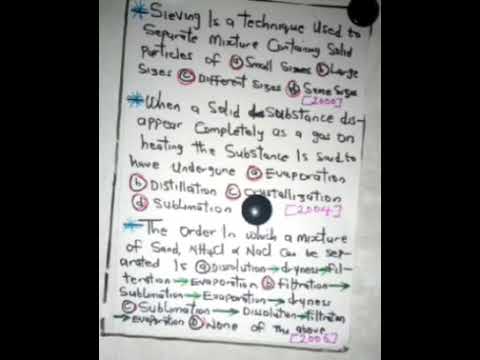 *Sieving Is a Technique Used to
Separate Mixture Containing Solid
Particles of (a) Small Sizes (b) Large
Sizes (c) Different Sizes (d) Same Sizes
[2000]
*When a Solid Substance dis-
appear Completely as a gas on
heating the Substance Is Said to
have Undergone (a) Evaporation
(b) Distillation (c) Crystallization
(d) Sublimation [2004]
*The Order In which a mixture
of Sand, NH4Cl & NaCl Can be sep-
arated Is (a) Dissolution→dryness→fil-
teration→Evaporation (b) filtration→
Sublimation→Evaporation→dryness
(c) Sublimation→Dissolution→filtration
→Evaporation (d) None of the above
[2006]